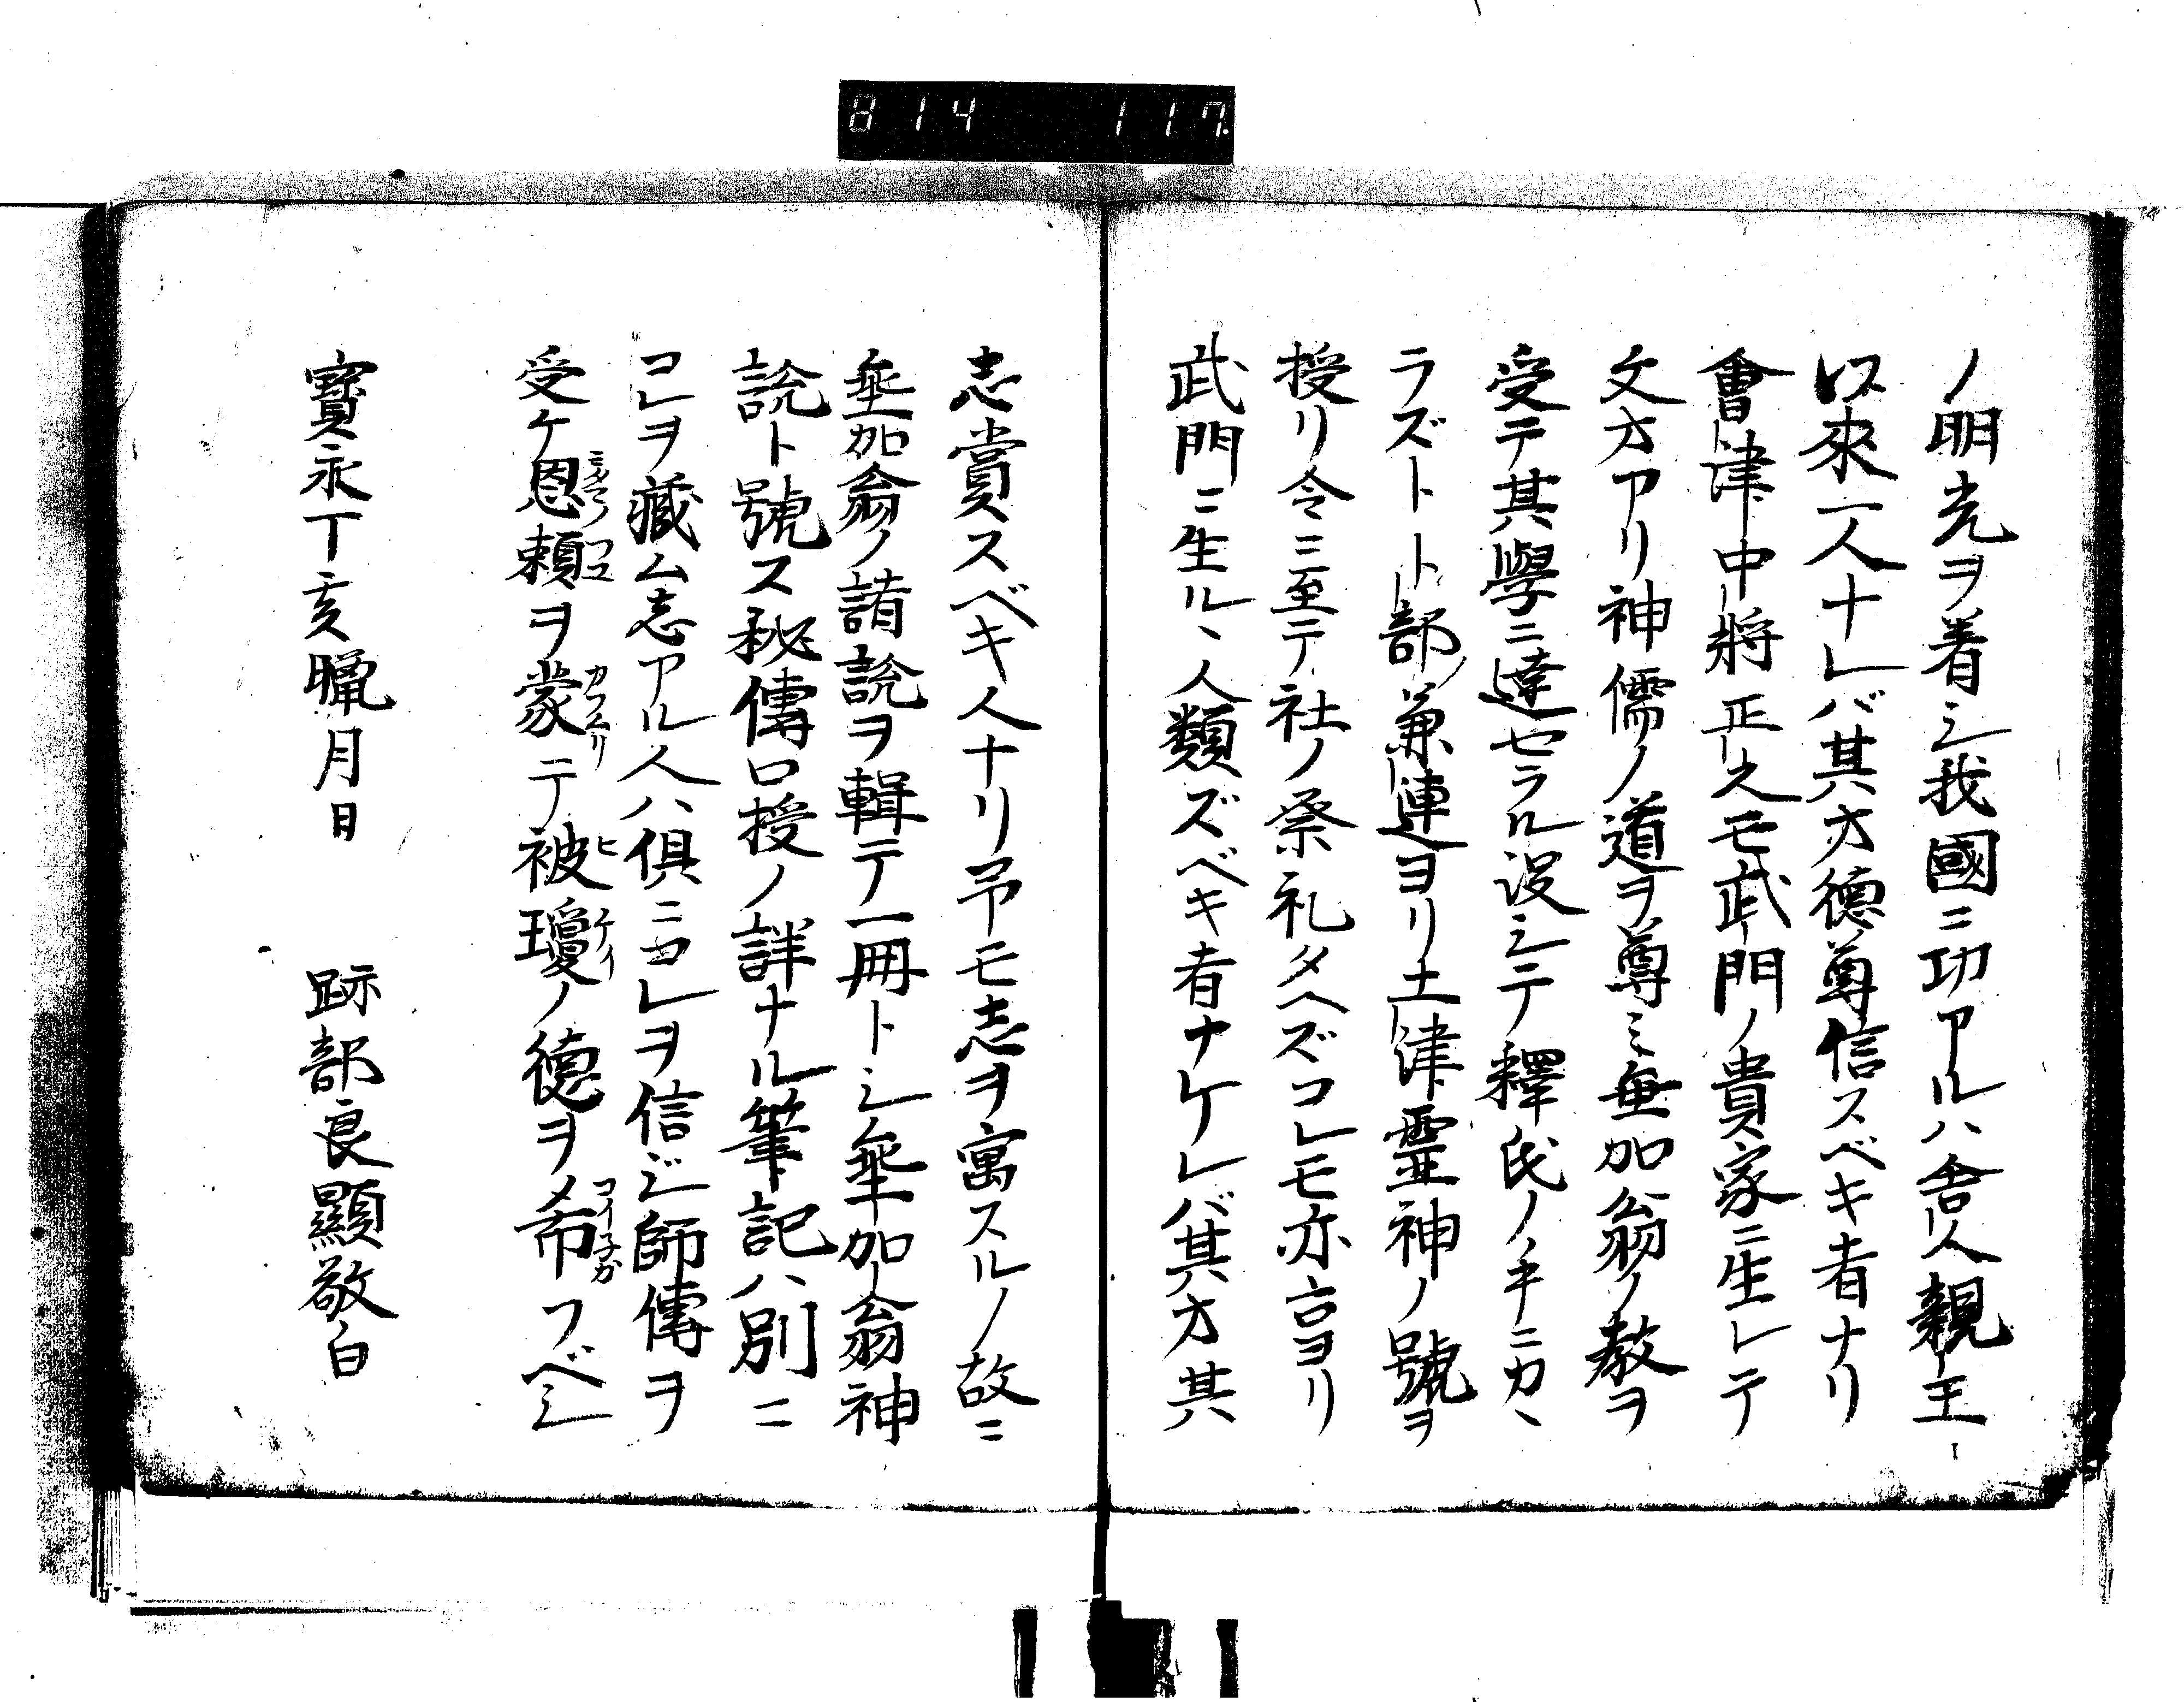 814 117
ノ明光ヲ着シ我國ニ功アルハ舎人親王
以來一人ナレバ其才德尊信スベキ者ナリ
會津中將正之モ武門ノ貴家ニ生レテ
文才アリ神儒ノ道ヲ尊ミ垂加翁ノ教ヲ
受テ其學ニ達セラル没シテ釋氏ノ手ニカヽ
ラズト卜部兼連ヨリ土津靈神ノ號ヲ
授リ今ニ至テ社ノ祭礼タヘズコレモ亦言ヨリ
武門ニ生ルヽ人類ズベキ者ナケレバ其才其
志賞スベキ人ナリ吊モ志ヲ寓スルノ故ニ
垂加翁ノ諸說ヲ輯テ一冊トシ垂加翁神
說ト號ス秘傳口授ノ詳ナル筆記ハ別ニ
コレヲ藏ム志アル人ハ俱ニコレヲ信ジ師傳ヲ
受ケ恩頼ヲ蒙テ被瓊ノ德ヲ希フベシ
寶永丁亥臘月日 跡部良顯敬白